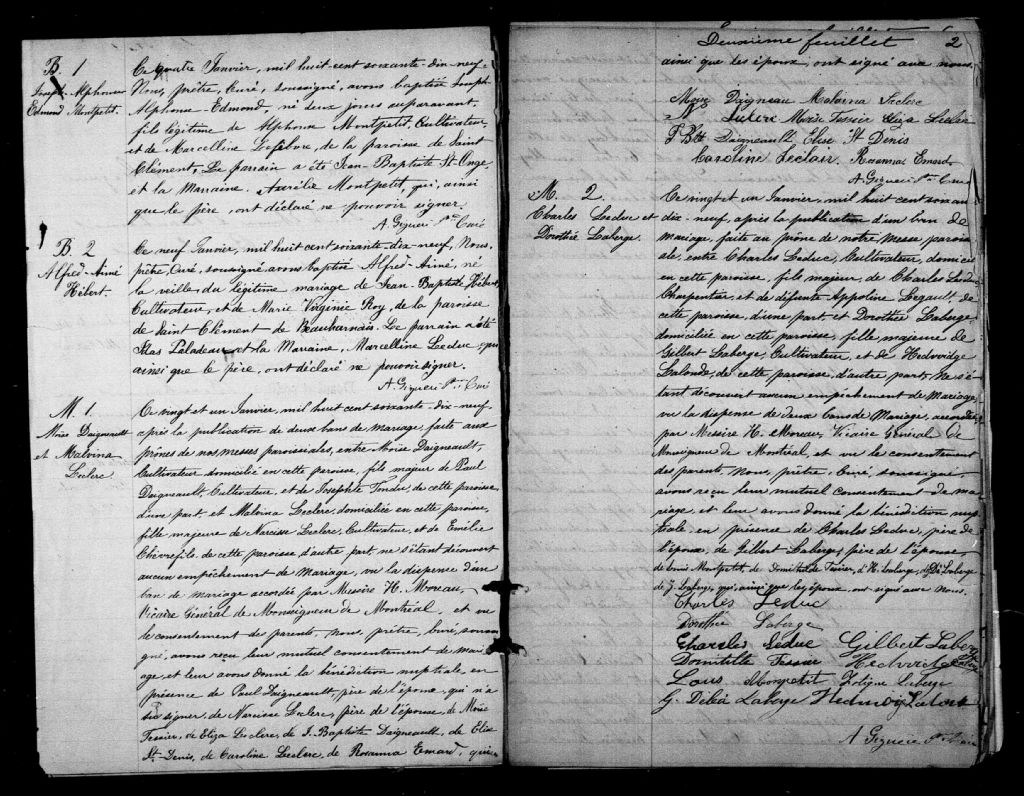 B. 1
Joseph Alphonse
Edmond Montpetit.
Ce quatre Janvier, mil huit-cent soixante-dix-neuf
Nous, prêtre, Curé, soussigné, avons baptisé Joseph-
Alphonse-Edmond né deux jours auparavant,
fils légitime de Alphonse Montpetit, Cultivateur,
et de Marcelline Lefebvre, de la paroisse de Saint
Clément. Le parrain a été Jean-Baptiste St-Onge
et la Marraine, Aurélie Montpetit, qui, ainsi
que le père, ont déclaré ne pouvoir signer.
A. Giguère Ptre Curé
B. 2
Alfred-Aimé
Hébert.
Ce neuf Janvier, mil huit cent soixante-dix-neuf, Nous,
prêtre, Curé, soussigné avons baptisé Alfred-Aimé, né
la veille, du légitime mariage de Jean-Baptiste Hébert,
Cultivateur, et de Marie Virginie Roy, de la paroisse
de Saint-Clément de Beauharnois. Le parrain a été
Paladeau et la Marraine, Marcelline Leduc qui
ainsi que le père, ont déclaré ne pouvoir signer.
A. Giguère Ptre Curé
M. 1.
Moïse Daigneault
et Malvina
Leclerc
Ce vingt et un Janvier, mil huit cent soixante-dix-neuf,
après la publication de deux bans de mariage, faite aux
prônes de nos messes paroissiales, entre Moïse Daigneault,
Cultivateur domicilié en cette paroisse, fils majeur de Paul
Daigneault, Cultivateur, et de Josephte Tondu, de cette paroisse,
d'une part et Malvina Leclerc, domiciliée en cette paroisse,
fille majeure de Narcisse Leclerc, Cultivateur, et de Emélie
Chèvrefils, de cette paroisse d'autre part, ne s'étant découvert
aucun empêchement de Mariage, vu la dispense d'un
ban de mariage accordée par Messire H. Moreau,
Vicaire Général de Monseigneur de Montréal, et vu
le consentement des parents, nous, prêtre, Curé, soussi
gné, avons reçu leur mutuel consentement de mari
age, et leur avons donné la bénédiction nuptiale, en
présence de Paul Daigneault, père de l'époux, qui n'a
su signer, de Narcisse Leclerc, père de l'épouse, de Moïse
Tessier, de Eliza Leclerc, de J. Baptiste Daigneault, de Elise
St-Denis, de Caroline Leclerc, de Rosanna Emard, qui
Deuxième feuillet 2
ainsi que les époux, ont signé avec nous.
Moïse Daigneau Malvina Leclerc
N Leclerc Moïse Tessier Eliza Leclerc
J Bte Daigneault Elise St Denis
Caroline Leclair. Rosanna Emard
A. Giguère Ptre Curé
M. 2
Charles Leduc et
Dorothée Laberge.
Ce vingt et un Janvier, mil huit cent soixante
dix-neuf, après la publication d'un ban de
Mariage, faite au prône de notre Messe, parois
siale, entre Charles Leduc, Cultivateur, domicilié
en cette paroisse, fils majeur de Charles Leduc
Charpentier, et de défunte Appoline Legault, de
cette paroisse, d'une part, et Dorothée Laberge
domiciliée en cette paroisse, fille majeure de
Gilbert Laberge, Cultivateur, et de Hedwidge
Lalonde, de cette paroisse, d'autre part, Ne s'é-
tant découvert aucun empêchement de Mariage,
vu la dispense de deux bans de Mariage, accordée
par Messire H. Moreau, Vicaire Général de
Monseigneur de Montréal, et vu le consentement
des parents, Nous, prêtre, Curé soussigné
avons reçu leur mutuel consentement de ma-
riage, et leur avons donné la bénédiction nup
tiale en présence de Charles Leduc, père de
l'époux, de Gilbert Laberge, père de l'épouse,
de Louis Montpetit, de Domitilde Tessier, d'H. Laberge, de D. Laberge
de Z. Laberge, qui, ainsi que les époux, ont signé avec Nous.
Charles Leduc
Dorothée Laberge
Charles Leduc Gilbert Laberge
Domitille Tessier Hedwidge
Louis Monpetit Zotique Laberge
G. Déléa Laberge Hedwidge
A Giguère Ptre Curé